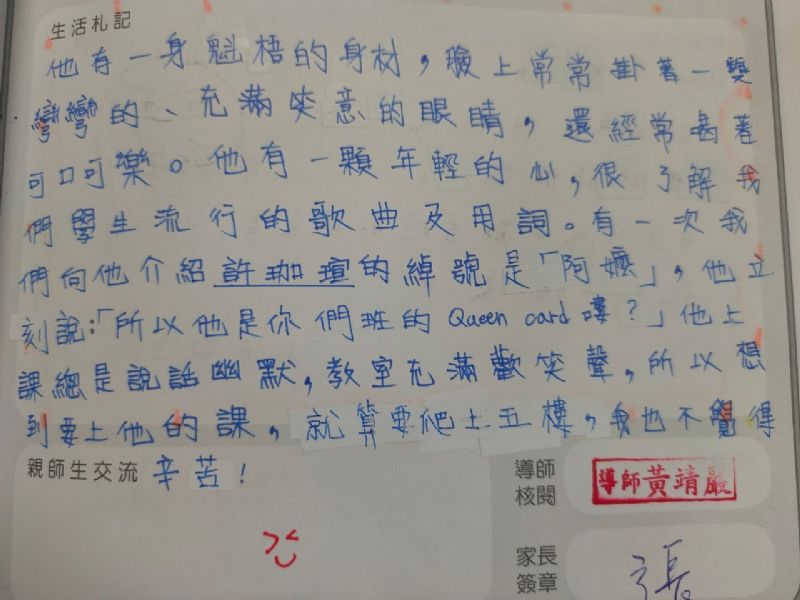 生活札記
他有一身魁梧的身材，臉上常常掛著一雙
彎彎的、充滿笑意的眼睛，還經常喝著
可口可樂。他有一顆年輕的心，很了解我
們學生流行的歌曲及用詞。有一次我
們向他介紹許珈瑄的綽號是「阿嬤」，他立
刻說：「所以他是你們班的Queen card嘍？」他上
課總是說話幽默，教室充滿歡笑聲，所以想
到要上他的課，就算要爬上五樓，我也不覺得
親師生交流 辛苦！
導師核閱 導師黃靖嚴
家長簽章 張